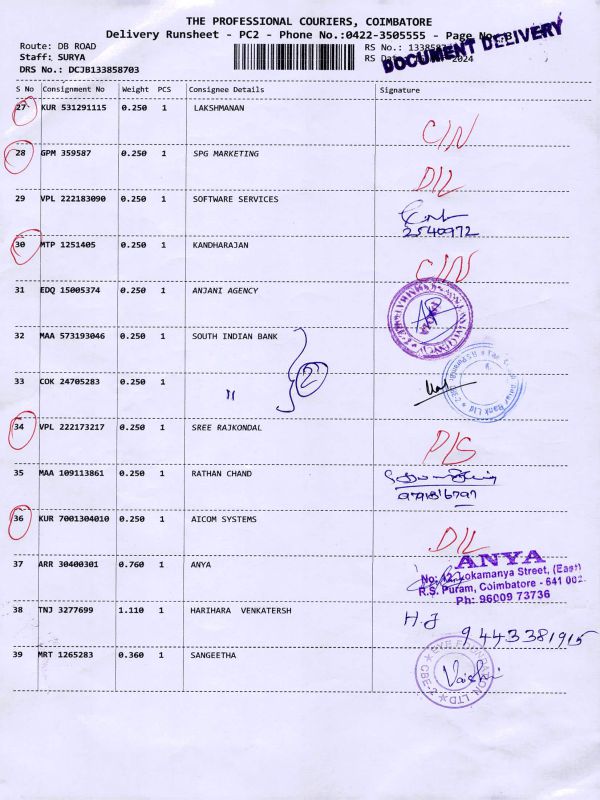 THE PROFESSIONAL COURIERS, COIMBATORE
Delivery Runsheet - PC2 - Phone No.:0422-3505555 - Page No.:
DOCUMENT DELIVERY
Route: DB ROAD
Staff: SURYA
DRS No.: DCJB133858703
RS No.: 13385
RS Da 2024
S No Consignment No Weight PCS Consignee Details Signature
27 KUR 531291115 0.250 1 LAKSHMANAN
C/N
28 GPM 359587 0.250 1 SPG MARKETING
D/L
29 VPL 222183090 0.250 1 SOFTWARE SERVICES
2540972
30 MTP 1251405 0.250 1 KANDHARAJAN
31 EDQ 15005374 0.250 1 ANJANI AGENCY
32 MAA 573193046 0.250 1 SOUTH INDIAN BANK
2
33 COK 24705283 0.250 1 "
34 VPL 222173217 0.250 1 SREE RAJKONDAL
D/S
35 MAA 109113861 0.250 1 RATHAN CHAND
36 KUR 7001304010 0.250 1 AICOM SYSTEMS
D/L
37 ARR 30400301 0.760 1 ANYA
ANYA
No: 12, Lokamanya Street, (East)
R.S. Puram, Coimbatore - 641 002.
Ph: 96009 73736
38 TNJ 3277699 1.110 1 HARIHARA VENKATERSH
H.J 9443381915
39 MRT 1265283 0.360 1 SANGEETHA
EYE FOUNDATION LTD
CBE-2
Vaishi